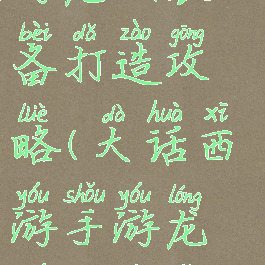 bèi dǎ zào gōng
备打造攻
lüè dà huà xī
略(大话西
yóu shǒu yóu lóng
游手游龙